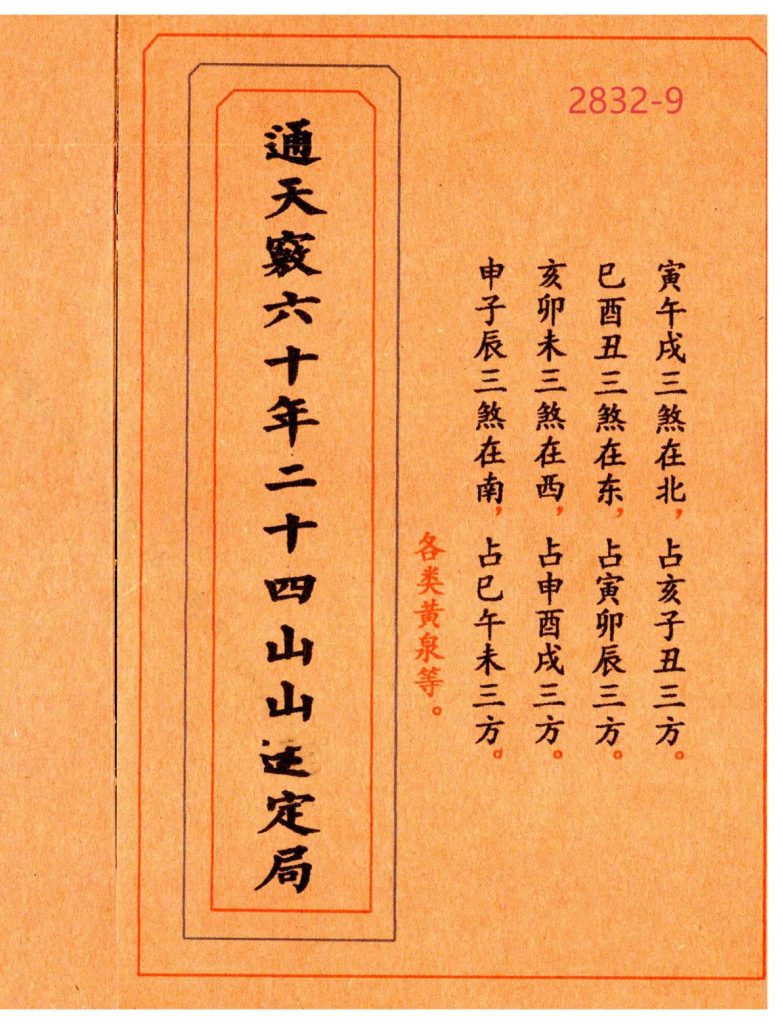 2832-9
寅午戌三煞在北，占亥子丑三方。
巳酉丑三煞在东，占寅卯辰三方。
亥卯未三煞在西，占申酉戌三方。
申子辰三煞在南，占巳午未三方。
各类黄泉等。
通天竅六十年二十四山山运定局